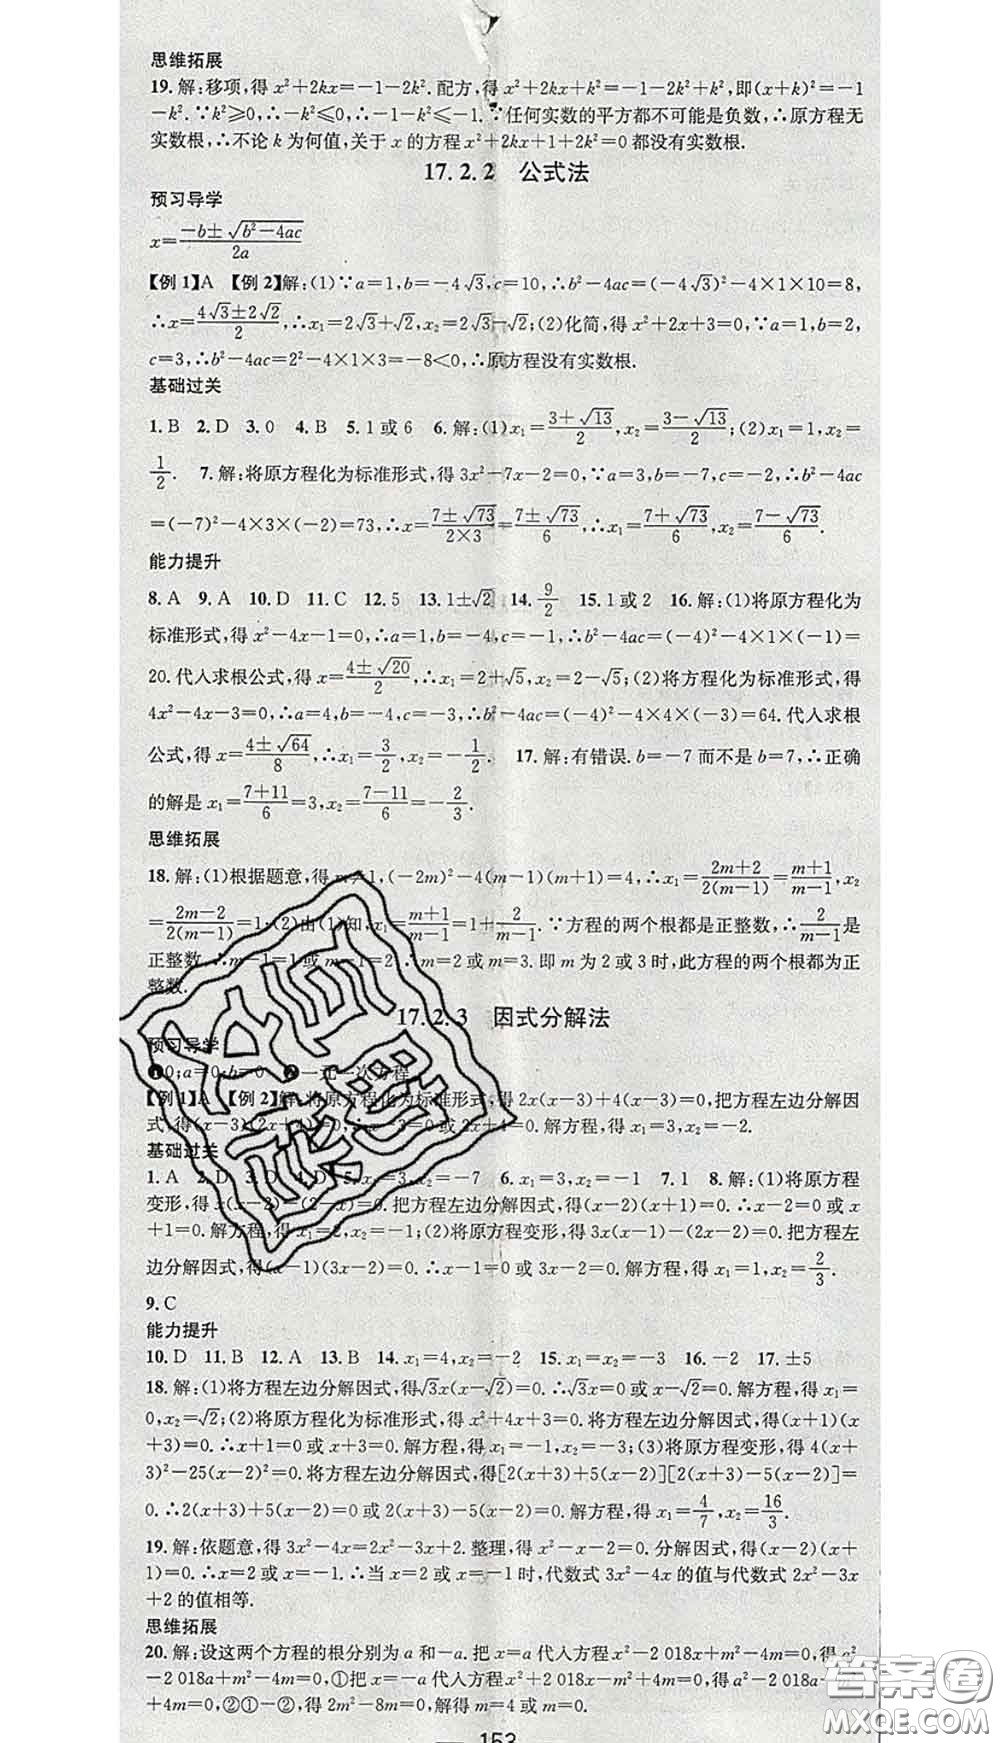 思维拓展
19. 解:移项,得 x²+2kx=-1-2k². 配方,得 x²+2kx+k²=-1-2k²+k²,即(x+k)²=-1
-k². ∵k²≥0,∴-k²≤0,∴-1-k²≤-1. ∵任何实数的平方都不可能是负数,∴原方程无
实数根,∴不论 k 为何值,关于 x 的方程 x²+2kx+1+2k²=0 都没有实数根.
17.2.2 公式法
预习导学
x=(-b±√(b²-4ac))/2a
【例 1】A 【例 2】解:(1)∵a=1,b=-4√3,c=10,∴b²-4ac=(-4√3)²-4×1×10=8,
∴x=(4√3±2√2)/2,∴x₁=2√3+√2,x₂=2√3-√2;(2)化简,得 x²+2x+3=0,∵a=1,b=2,
c=3,∴b²-4ac=2²-4×1×3=-8<0,∴原方程没有实数根.
基础过关
1. B 2. D 3. 0 4. B 5. 1 或 6 6. 解:(1)x₁=(3+√13)/2,x₂=(3-√13)/2;(2)x₁=1,x₂=
1/2. 7. 解:将原方程化为标准形式,得 3x²-7x-2=0,∵a=3,b=-7,c=-2,∴b²-4ac
=(-7)²-4×3×(-2)=73,∴x=(7±√73)/(2×3)=(7±√73)/6,∴x₁=(7+√73)/6,x₂=(7-√73)/6.
能力提升
8. A 9. A 10. D 11. C 12. 5 13. 1±√2 14. 9/2 15. 1 或 2 16. 解:(1)将原方程化为
标准形式,得 x²-4x-1=0,∴a=1,b=-4,c=-1,∴b²-4ac=(-4)²-4×1×(-1)=
20. 代入求根公式,得 x=(4±√20)/2,∴x₁=2+√5,x₂=2-√5;(2)将方程化为标准形式,得
4x²-4x-3=0,∴a=4,b=-4,c=-3,∴b²-4ac=(-4)²-4×4×(-3)=64. 代入求根
公式,得 x=(4±√64)/8,∴x₁=3/2,x₂=-1/2. 17. 解:有错误. b=-7 而不是 b=7,∴正确
的解是 x₁=(7+11)/6=3,x₂=(7-11)/6=-2/3.
思维拓展
18. 解:(1)根据题意,得 m≠1,(-2m)²-4(m-1)(m+1)=4,∴x₁=(2m+2)/2(m-1)=(m+1)/(m-1),x₂
=(2m-2)/2(m-1)=1;(2)由(1)知,x₁=(m+1)/(m-1)=1+2/(m-1). ∵方程的两个根都是正整数,∴2/(m-1)是
正整数,∴m-1=1 或 m-1=2. ∴m=2 或 m=3. 即 m 为 2 或 3 时,此方程的两个根都为正
整数.
17.2.3 因式分解法
预习导学
❶0;a=0;b=0 ❷一元一次方程
【例 1】A 【例 2】解:将原方程化为标准形式,得 2x(x-3)+4(x-3)=0,把方程左边分解因
式,得(x-3)(2x+4)=0,∴x-3=0 或 2x+4=0. 解方程,得 x₁=3,x₂=-2.
基础过关
1. A 2. D 3. D 4. D 5. x₁=3,x₂=-7 6. x₁=3,x₂=-1 7. 1 8. 解:(1)将原方程
变形,得 x(x-2)-(2-x)=0. 把方程左边分解因式,得(x-2)(x+1)=0. ∴x-2=0 或 x
+1=0. 解方程,得 x₁=2,x₂=-1;(2)将原方程变形,得 3x(x-1)-(2x-2)=0. 把方程左
边分解因式,得(x-1)(3x-2)=0. ∴x-1=0 或 3x-2=0. 解方程,得 x₁=1,x₂=2/3.
9. C
能力提升
10. D 11. B 12. A 13. B 14. x₁=4,x₂=-2 15. x₁=x₂=-3 16. -2 17. ±5
18. 解:(1)将方程左边分解因式,得√3x(x-√2)=0. ∴√3x=0 或 x-√2=0. 解方程,得 x₁=
0,x₂=√2;(2)将原方程化为标准形式,得 x²+4x+3=0. 将方程左边分解因式,得(x+1)(x
+3)=0. ∴x+1=0 或 x+3=0. 解方程,得 x₁=-1,x₂=-3;(3)将原方程变形,得 4(x+
3)²-25(x-2)²=0. 将方程左边分解因式,得[2(x+3)+5(x-2)][2(x+3)-5(x-2)]=
0. ∴2(x+3)+5(x-2)=0 或 2(x+3)-5(x-2)=0. 解方程,得 x₁=4/7,x₂=16/3.
19. 解:依题意,得 3x²-4x=2x²-3x+2. 整理,得 x²-x-2=0. 分解因式,得(x-2)(x+
1)=0. ∴x=2 或 x=-1. ∴当 x=2 或 x=-1 时,代数式 3x²-4x 的值与代数式 2x²-3x
+2 的值相等.
思维拓展
20. 解:设这两个方程的根分别为 a 和-a. 把 x=a 代入方程 x²-2 018x+m²-4m=0,得 a²
-2 018a+m²-4m=0,①把 x=-a 代入方程 x²+2 018x-m²+4m=0,得 a²-2 018a-m²
+4m=0,②①-②,得 2m²-8m=0,解得 m=4 或 m=0.
153
答案圈
MXQE.COM